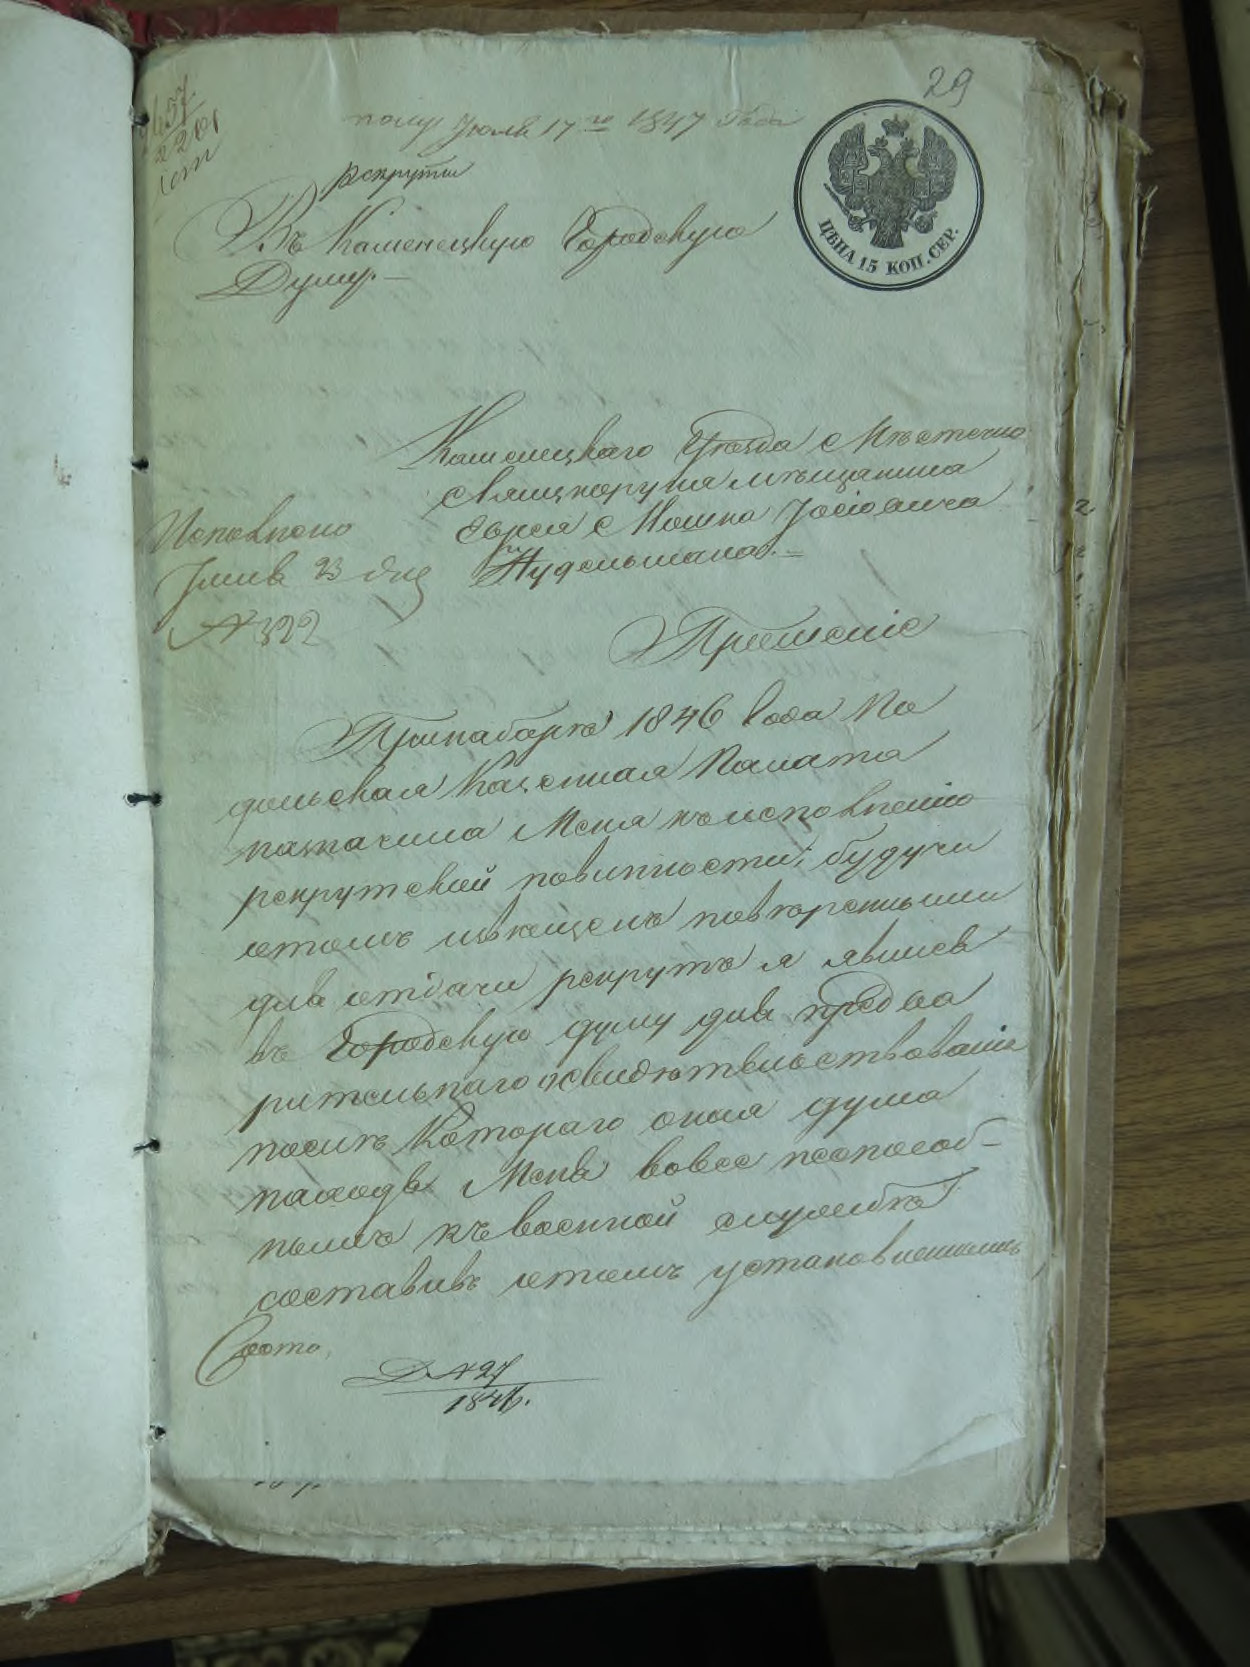 29
полу Іюля 17го 1847 Года
рекрутск
Въ Каменецкую Городскую
Думу.—
ЦѢНА 15 КОП. СЕР.
Каменецкаго Уѣзда Мѣстечка
мѣщанина
Еврея Мошка Іосіовича
Нудельмана.—
Исполнено
Іюля 23 дня
№ 322
Прошеніе
1846 Года По
дольская Казенная Палата
назначила Меня къ исполненію
рекрутской повинности; будучи
повѣренными
для отдачи рекрутъ я явился
въ Городскую думу для предва
рительнаго освидѣтельствованія
послѣ Котораго оная дума
находя Меня вовсе неспособ-
нымъ къ военной службѣ
составивъ о томъ установленный
Д № 27
184